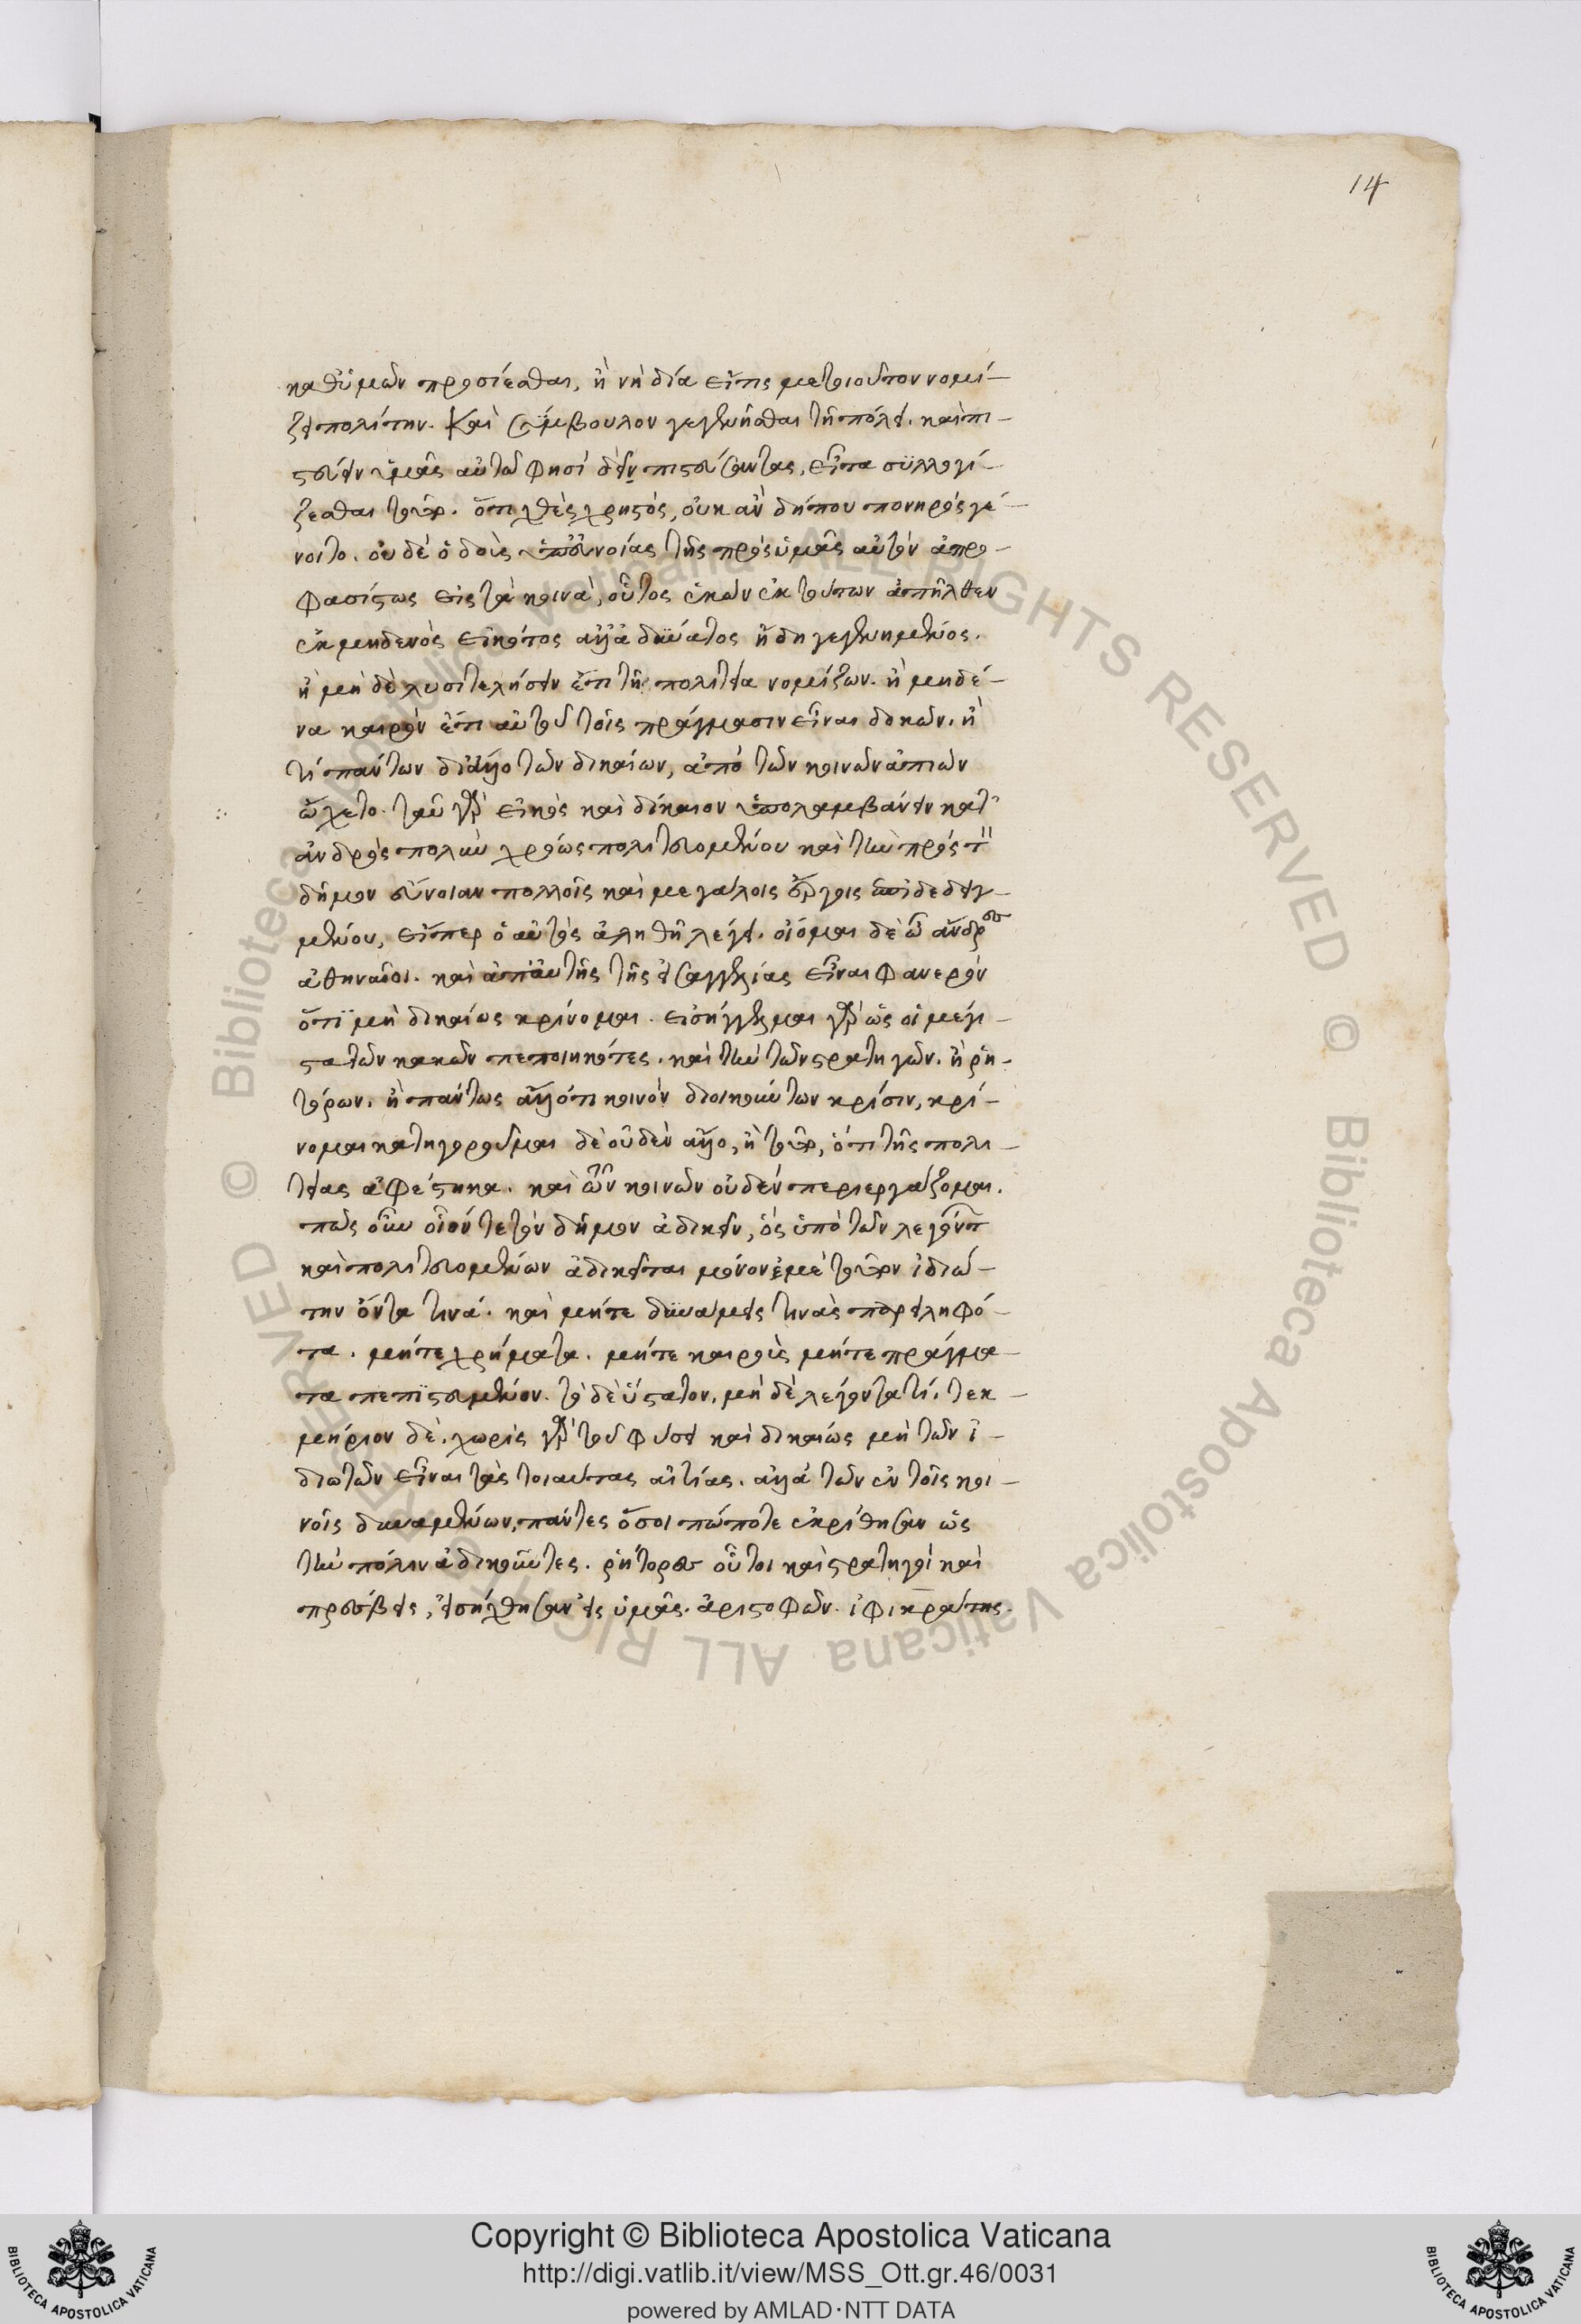 14
καθ' ὑμῶν προσίεσθαι, ἢ νὴ δία εἴ τις μέτριον τὸν νομί-
ζει πολίτην. καὶ σύμβουλον γεγενῆσθαι τῇ πόλει. καὶ πι-
στεύειν ὑμᾶς αὐτῷ φησὶ δεῖν πιστεύσαντας, εἶτα συλλογί-
ζεσθαι τοῦθ'. ὅτι χθὲς χρηστός, οὐκ ἂν δήπου πονηρὸς γέ-
νοιτο. οὐδὲ ὁ δοὺς ὑπ' εὐνοίας τῆς πρὸς ὑμᾶς αὑτὸν ἀπρο-
φασίστως εἰς τὰ κοινὰ, οὗτος ἑκὼν ἐκ τούτων ἀπῆλθεν
ἐκ μηδενὸς εἰκότος ἀλλ' ἀδύνατος ἤδη γεγενημένος.
ἢ μὴ δὲ λυσιτελήσειν ἔτι τῇ πολιτεία νομίζων. ἢ μηδέ-
να καιρὸν ἔτι αὐτοῦ τοῖς πράγμασιν εἶναι δοκῶν. ἢ
τί πάντων δι' ἄλλο τῶν δικαίων, ἀπὸ τῶν κοινῶν ἀπιὼν
ᾤχετο. ταῦτα γὰρ εἰκὸς καὶ δίκαιον ὑπολαμβάνειν κατ'
ἀνδρὸς πολὺν χρόνον πολιτευομένου καὶ τὴν πρὸς τὸν
δῆμον εὔνοιαν πολλοῖς καὶ μεγάλοις ἔργοις ἐπιδεδειγ-
μένου, εἴπερ ὁ αὐτὸς ἀληθῆ λέγει. οἶμαι δὲ ὦ ἄνδρες
ἀθηναῖοι. καὶ ἀπ' αὐτῆς τῆς εἰσαγγελίας εἶναι φανερὸν
ὅτι μὴ δικαίως κρίνομαι. εἰσήγγελμαι γὰρ ὡς οἱ μέγι-
στα τῶν κακῶν πεποιηκότες. καὶ τὴν τῶν στρατηγῶν. ἢ ῥη-
τόρων. ἢ πάντως ἄλλο τι κοινὸν διοικούντων κρίσιν, κρί-
νομαι κατηγοροῦμαι δὲ οὐδὲν ἄλλο, ἢ τοῦθ', ὅτι τῆς πολι-
τείας ἀφέστηκα. καὶ τῶν κοινῶν οὐδὲν περιεργάζομαι.
πῶς οὖν οἷόν τε τὸν δῆμον ἀδικεῖν, ὃς ὑπὸ τῶν λεγόντων
καὶ πολιτευομένων ἀδικεῖται μόνον ἐμὲ τοῦτον ἰδιώ-
την ὄντα τινά. καὶ μήτε δυνάμεις τινὰς παρειληφό-
τα. μήτε χρήματα. μήτε καιροὺς μήτε πράγμα-
τα πεπιστευμένον. τὸ δὲ ὕστατον, μὴ δὲ λέγοντά τί. τεκ-
μήριον δὲ. χωρὶς γὰρ τοῦ φύσει καὶ δικαίως μὴ τῶν ἰ-
διωτῶν εἶναι τὰς τοιαύτας αἰτίας. ἀλλὰ τῶν ἐν τοῖς κοι-
νοῖς δυναμένων, πάντες ὅσοι πώποτε ἐκρίθησαν ὡς
τὴν πόλιν ἀδικοῦντες. ῥήτορες οὗτοι καὶ στρατηγοὶ καὶ
πρέσβεις, εἰσήχθησαν εἰς ὑμᾶς. ἀριστοφῶν. ἰφικράτης.
Copyright © Biblioteca Apostolica Vaticana
http://digi.vatlib.it/view/MSS_Ott.gr.46/0031
powered by AMLAD·NTT DATA